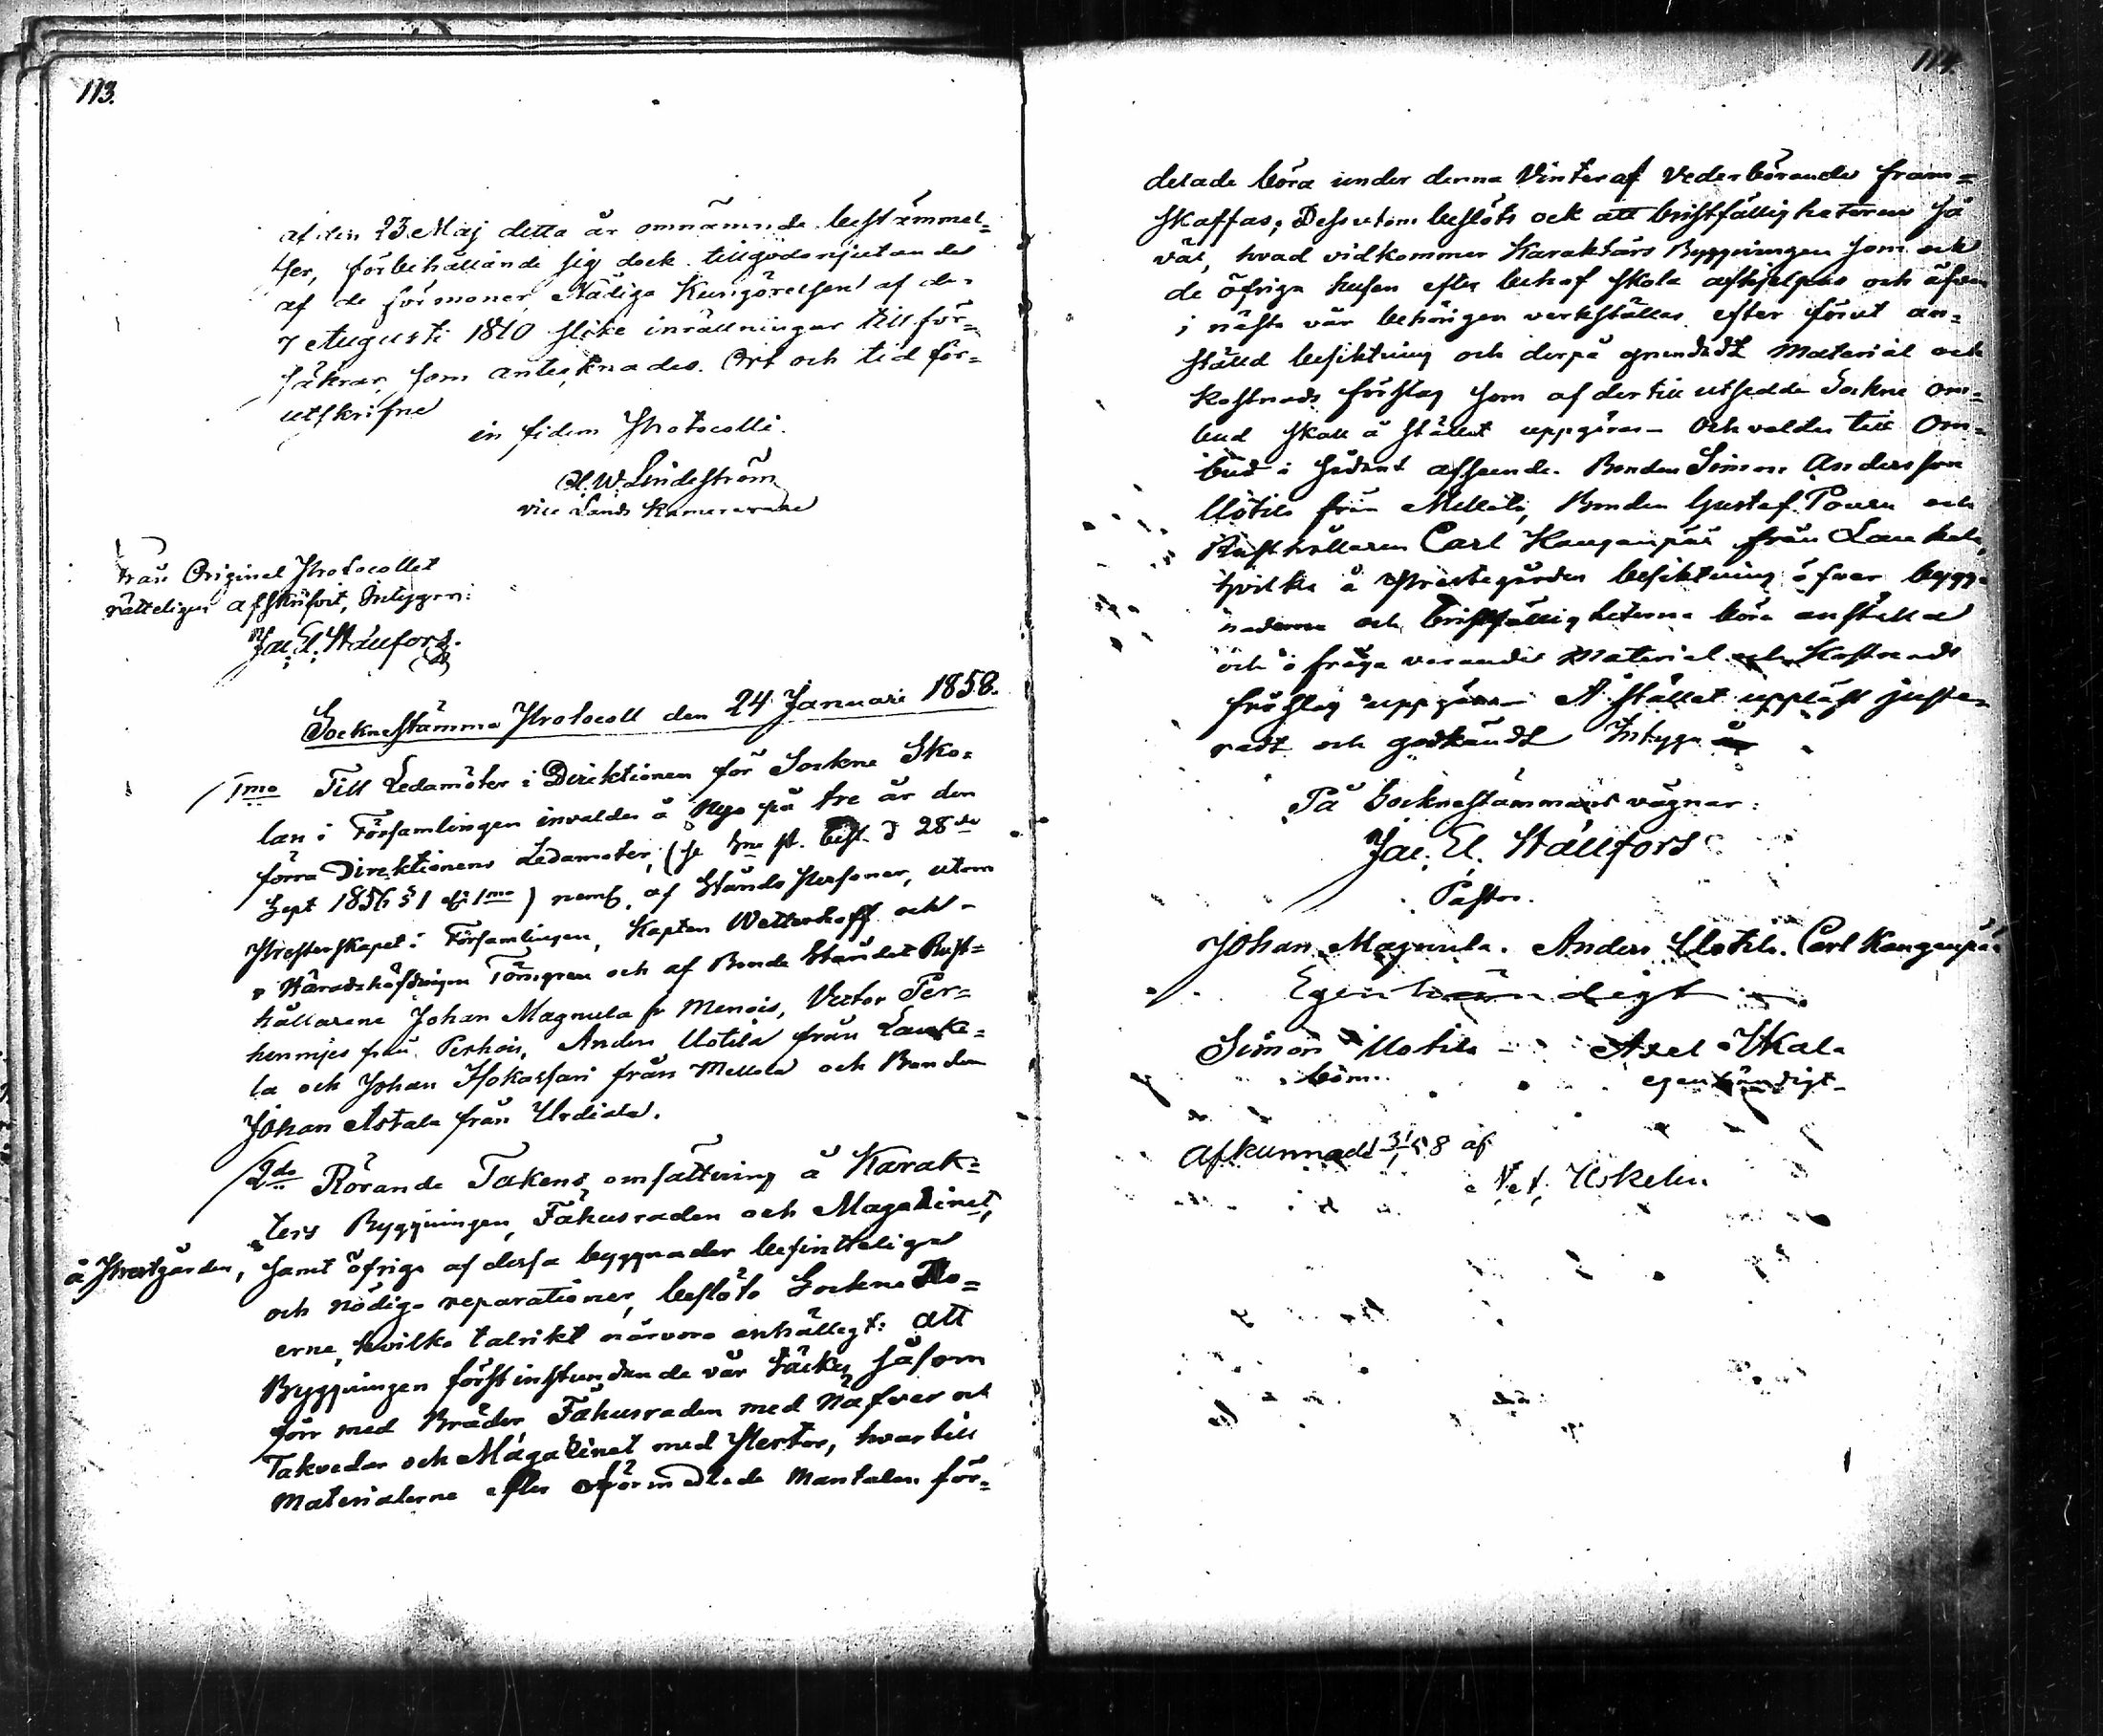 113.
af den 23 Maj detta år omnämnde bestämmel=
ser, förbehållande sig dock tillgodonjutandet
af de förmoner Nådiga Kungörelsen af den
7 Augusti 1840 slike inrättningar tillför=
säkrar, som antecknades. Ort och tid för=
utskrifne
in fidem Protocolli.
W. Lindeström
vice Lands Kamererare
Från Original Protocollet
rätteligen afskrifvit, Intygar:
Jac. El. Hällfors.
Socknestämmo Protocoll den 24 Januari 1858.
1mo Till Ledamöter i Direktionen för Sockne Sko=
lan i Församlingen invaldes å nyo på tre år den
förra Direktionens Ledamöter, (se st. d 28de
Sept 1856 § 1 1mo) neml. af Stånds Personer, utom
Presterskapet i Församlingen, Kapten Wetterhoff och
Häradshöfdingen Törngren och af Bonde Ståndet Rust=
hållarene Johan Magnula fr Menois, Victor Per=
henmjes från Perhois, Anders Uotila från Lauke=
la och Johan Isokassari från Mellola och Bonden
Johan Astala från Urdiala.
2do Rörande Takens omsättning å Karak=
ters Byggningen, Fähusraden och Magazinet,
å Prestgården, samt öfriga af dessa byggnader befintteliga
och nödiga reparationer, beslöto Sockne Bo=
erne, hvilka talrikt närvoro enhälligt: att
Byggningen först instundande vår täckes såsom
förr med Bräder, Fähusraden med Näfver och
Takvedar och Magazinet med Pertor, hvartill
Materialerne efter oförmedlade Mantalen för=
114.
delade böra under denna Vinter af Vederbörande fram=
skaffas; Dessutom beslöts ock att bristfälligheterne så
väl, hvad vidkommer Karakters Byggningen som ock
de öfriga husen efter behof skola afhjelpas och äfven
i nästa vår behörigen verkställas efter förut an=
ställd besiktning och derpå grundadt Material och
Kostnads förslag som af dertill utsedde Sockne om=
bud skall å stället uppgöras – Och valdes till Om=
bud i sådant afseende. Bonden Simon Andersson
Uotila från Mellola, Bonden Gustaf Pouru och
Rusthållaren Carl Kangenpää från Laukela,
hvilka å Prestegården besiktning öfver bygg=
naderna och bristfälligheterna böra anställa
och i fråga varande Material och Kostnads
förslag uppgöra – Å stället uppläst juste=
radt och godkändt Intyga
På Sockneståmmans vägnar:
Jac. El. Hällfors
Pastor.
Johan Magnula. Anders Uotila. Carl Kangenpää
Egenhändigt
Simon Uotila – Axel Skala
bom. egenhändigt
afkunnadt 31/1 58 af
Uskelin